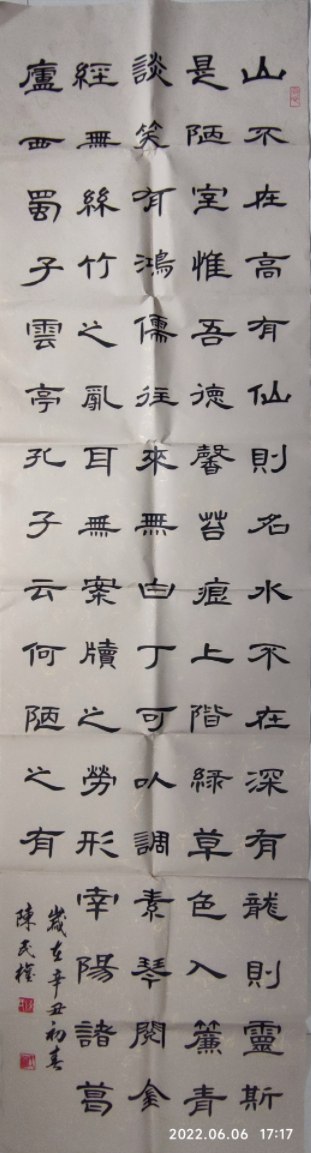 山不在高有仙則名水不在深有龍則靈斯
是陋室惟吾德馨苔痕上階緑草色入簾青
談笑有鴻儒往來無白丁可以調素琴閱金
經無絲竹之亂耳無案牘之勞形南陽諸葛
廬西蜀子雲亭孔子云何陋之有
歲在辛丑初春
陳民權
2022.06.06 17:17